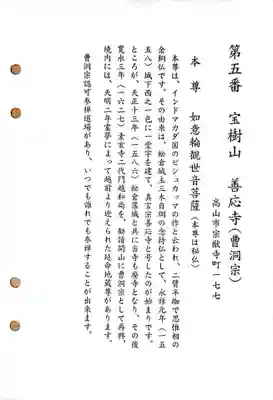 第五番　宝樹山　善応寺(曹洞宗)
高山市宗猷寺町一七七
本尊　如意輪観世音菩薩(本尊は秘仏)
本尊は、インドマカダ国のビシュカツマの作と云われ、二臂半跏で思惟相の
金銅仏です。その由来は、松倉城主三木自綱の念持仏として、永禄元年(一五
五八)城下西之一色に一堂宇を建て、真言宗善応寺と号したのが始まりです。
ところが、天正十三年(一五八六)松倉落城と共に当寺も廃寺となり、その後
寛永三年(一六二七)素玄寺二代門越和尚を、勧請開山に曹洞宗として再興、
境内には、天明二年霊夢によって越前より迎えられた延命地蔵尊があります。
曹洞宗認可参禅道場があり、いつでも誰れでも参禅することが出来ます。